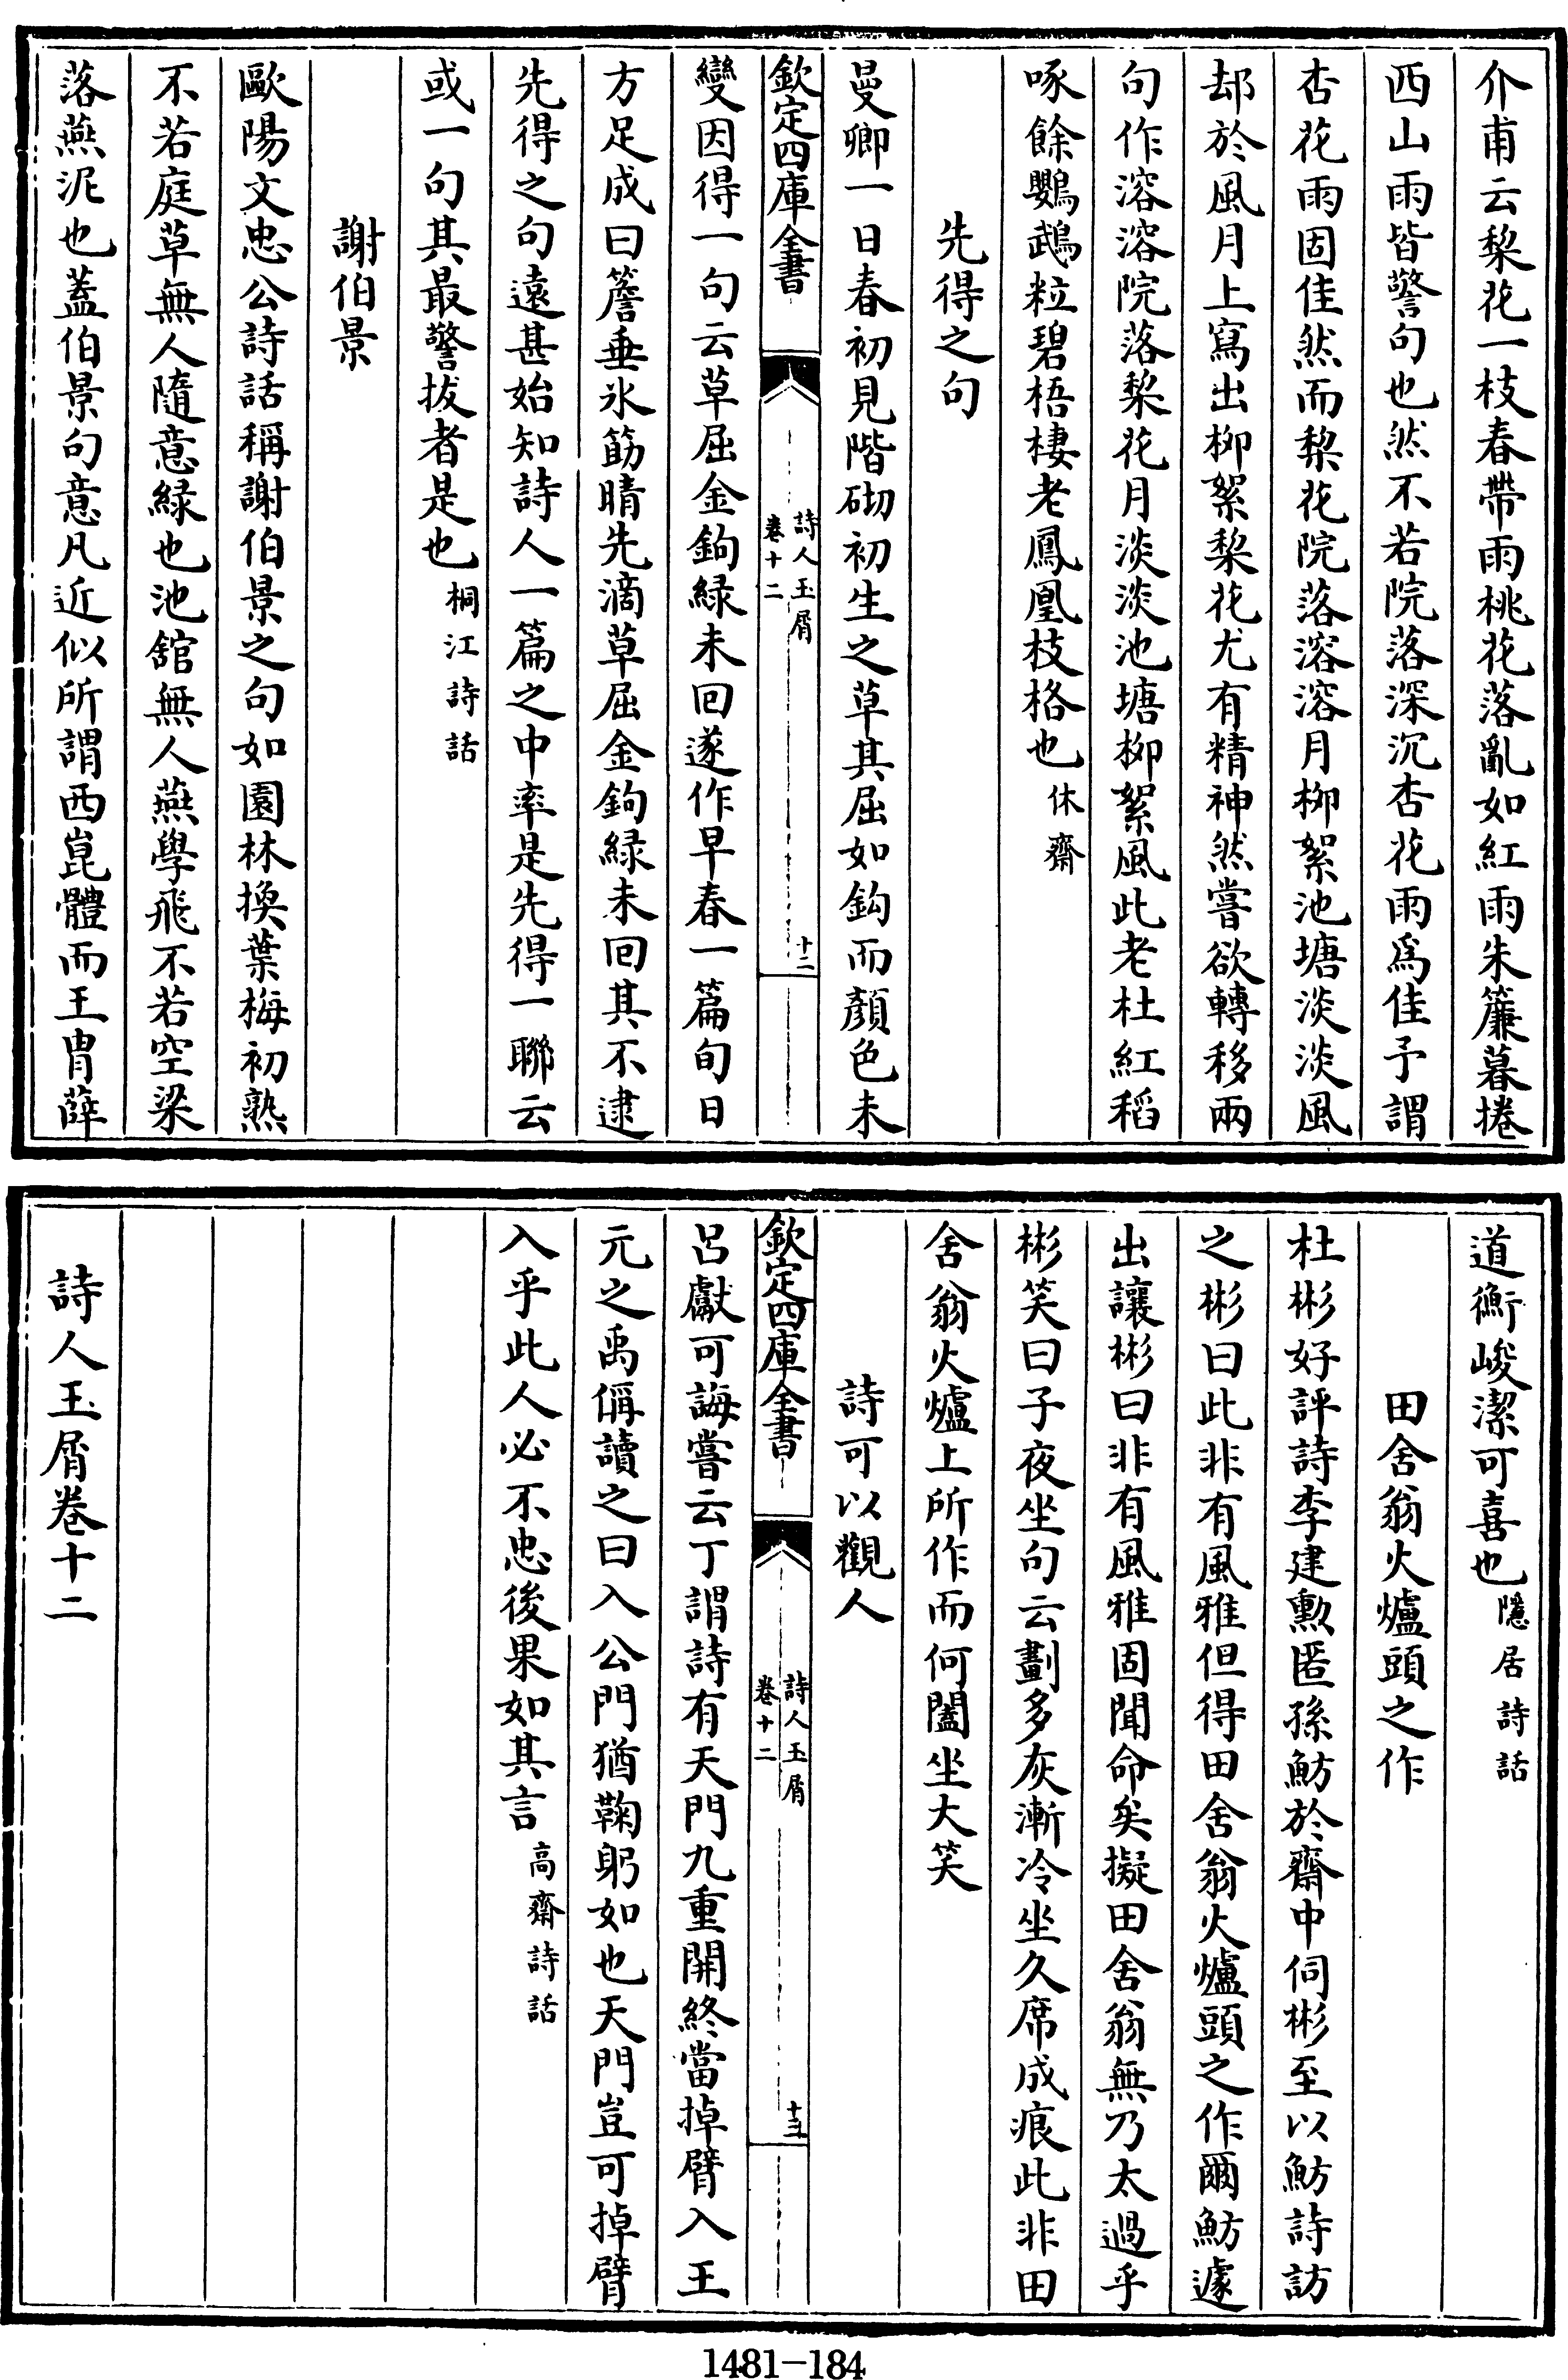 介甫云梨花一枝春帶雨桃花落亂如紅雨朱簾暮捲
西山雨皆警句也然不若院落深沉杏花雨爲佳予謂
杏花雨固佳然而梨花院落溶溶月柳絮池塘淡淡風
却於風月上寫出柳絮梨花尤有精神然嘗欲轉移兩
句作溶溶院落梨花月淡淡池塘柳絮風此老杜紅稻
啄餘鸚鵡粒碧梧棲老鳳凰枝格也休齋
先得之句
曼卿一日春初見階砌初生之草其屈如鈎而顏色未
欽定四庫全書
詩人玉屑
卷十二
十二
變因得一句云草屈金鉤緑未回遂作早春一篇旬日
方足成曰簷垂氷筯晴先滴草屈金鉤緑未回其不逮
先得之句遠甚始知詩人一篇之中率是先得一聯云
或一句其最警拔者是也桐江詩話
謝伯景
歐陽文忠公詩話稱謝伯景之句如園林換葉梅初熟
不若庭草無人隨意緑也池舘無人燕學飛不若空梁
落燕泥也蓋伯景句意凡近似所謂西崑體而王胄薛
道衡峻潔可喜也隱居詩話
田舍翁火爐頭之作
杜彬好評詩李建勲匿孫魴於齋中伺彬至以魴詩訪
之彬曰此非有風雅但得田舍翁火爐頭之作爾魴遽
出讓彬曰非有風雅固聞命矣擬田舍翁無乃太過乎
彬笑曰子夜坐句云劃多灰漸冷坐久席成痕此非田
舍翁火爐上所作而何闔坐大笑
詩可以觀人
欽定四庫全書
詩人玉屑
卷十二
十三
呂獻可誨嘗云丁謂詩有天門九重開終當掉臂入王
元之禹偁讀之曰入公門猶鞠躬如也天門豈可掉臂
入乎此人必不忠後果如其言高齋詩話
詩人玉屑卷十二
1481-184